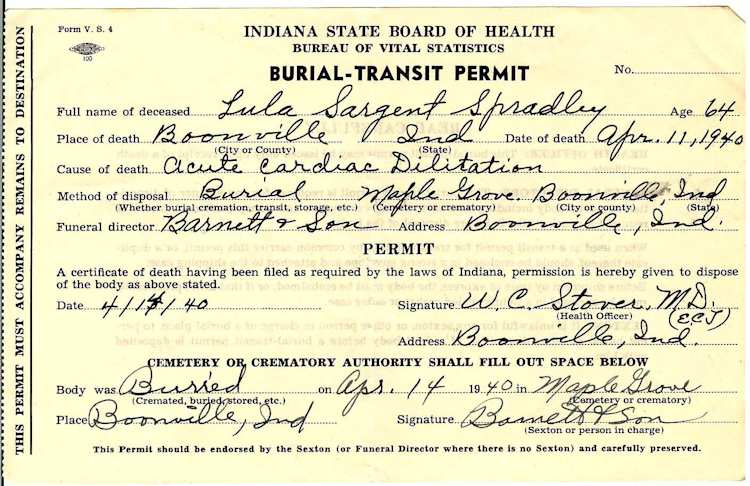 Form V. S. 4
100
INDIANA STATE BOARD OF HEALTH
BUREAU OF VITAL STATISTICS
BURIAL-TRANSIT PERMIT
No.
Full name of deceased Lula Sargent Spradley Age 64
Place of death Boonville Ind Date of death Apr. 11, 1940
(City or County) (State)
Cause of death Acute Cardiac Dilitation
Method of disposal Burial Maple Grove Boonville, Ind
(Whether burial cremation, transit, storage, etc.) (Cemetery or crematory) (City or county) (State)
Funeral director Barnett & Son Address Boonville, Ind.
PERMIT
A certificate of death having been filed as required by the laws of Indiana, permission is hereby given to dispose
of the body as above stated.
Date 4/ /40 Signature W. C. Stover, M.D.
(Health Officer) (ECJ)
Address Boonville, Ind.
CEMETERY OR CREMATORY AUTHORITY SHALL FILL OUT SPACE BELOW
Body was Buried on Apr. 14 1940 in Maple Grove
(Cremated, buried, stored, etc.) (Cemetery or crematory)
Place Boonville, Ind Signature Barnett & Son
(Sexton or person in charge)
This Permit should be endorsed by the Sexton (or Funeral Director where there is no Sexton) and carefully preserved.
THIS PERMIT MUST ACCOMPANY REMAINS TO DESTINATION